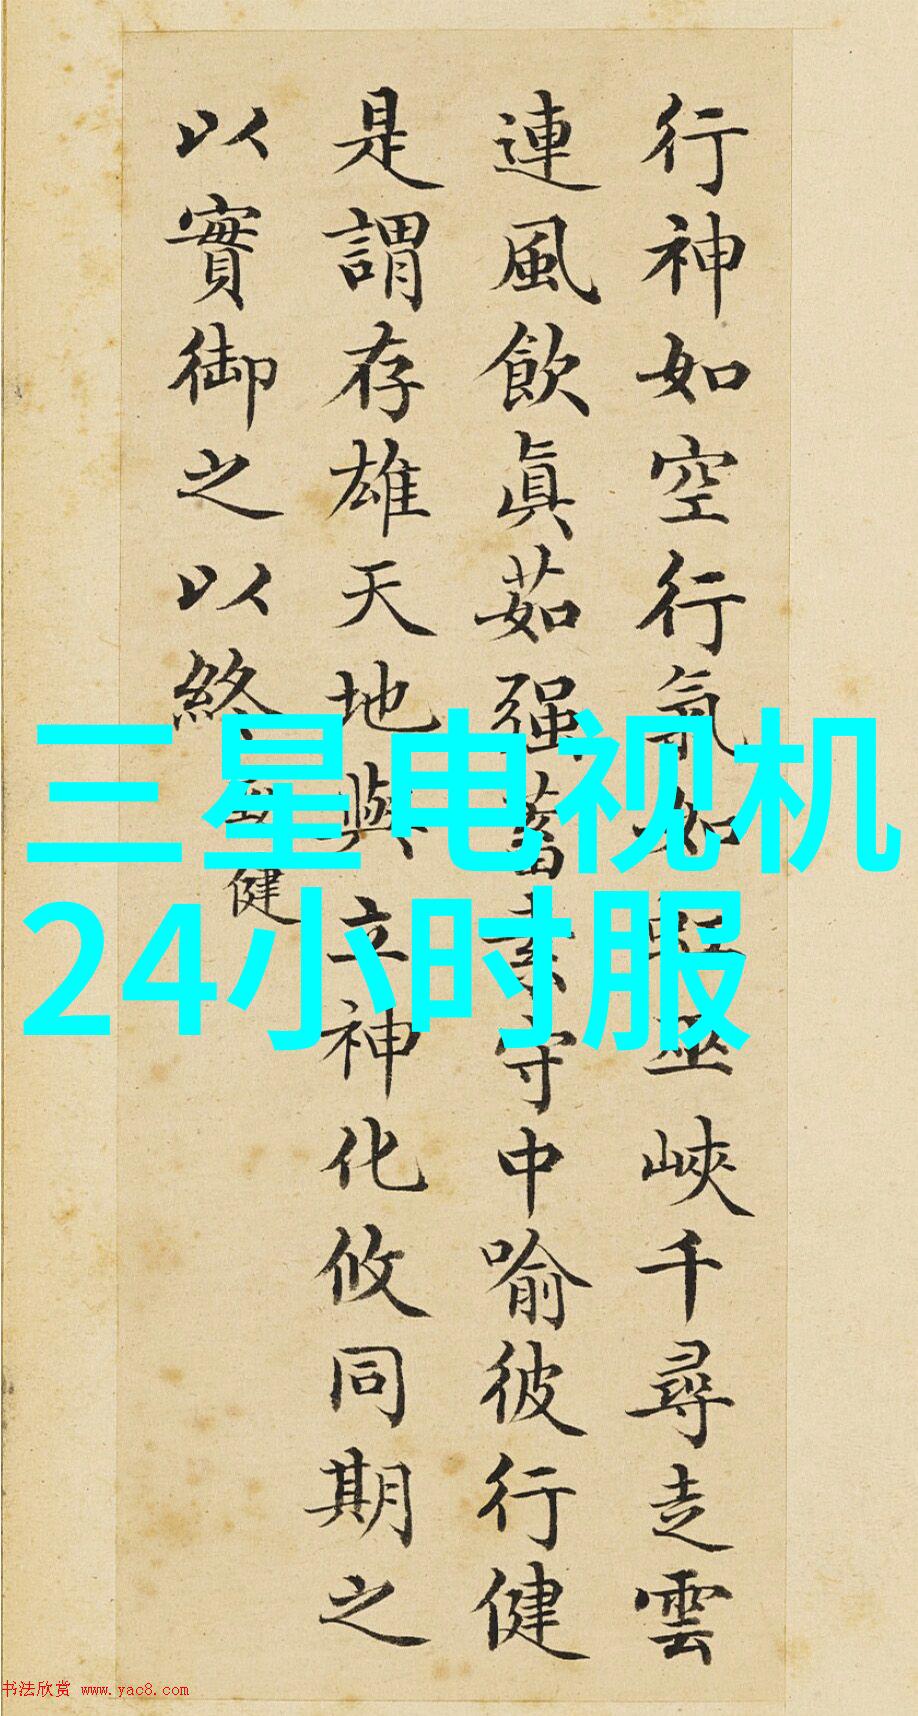 行神如空行氣如虹巫峽千尋走雲
連風飲眞茹强蓄素守中喻彼行健
是謂存雄天地與立神化攸同期之
以實御之以終
勁健
三星电视机
24小时服
书法欣赏 www.yac8.com